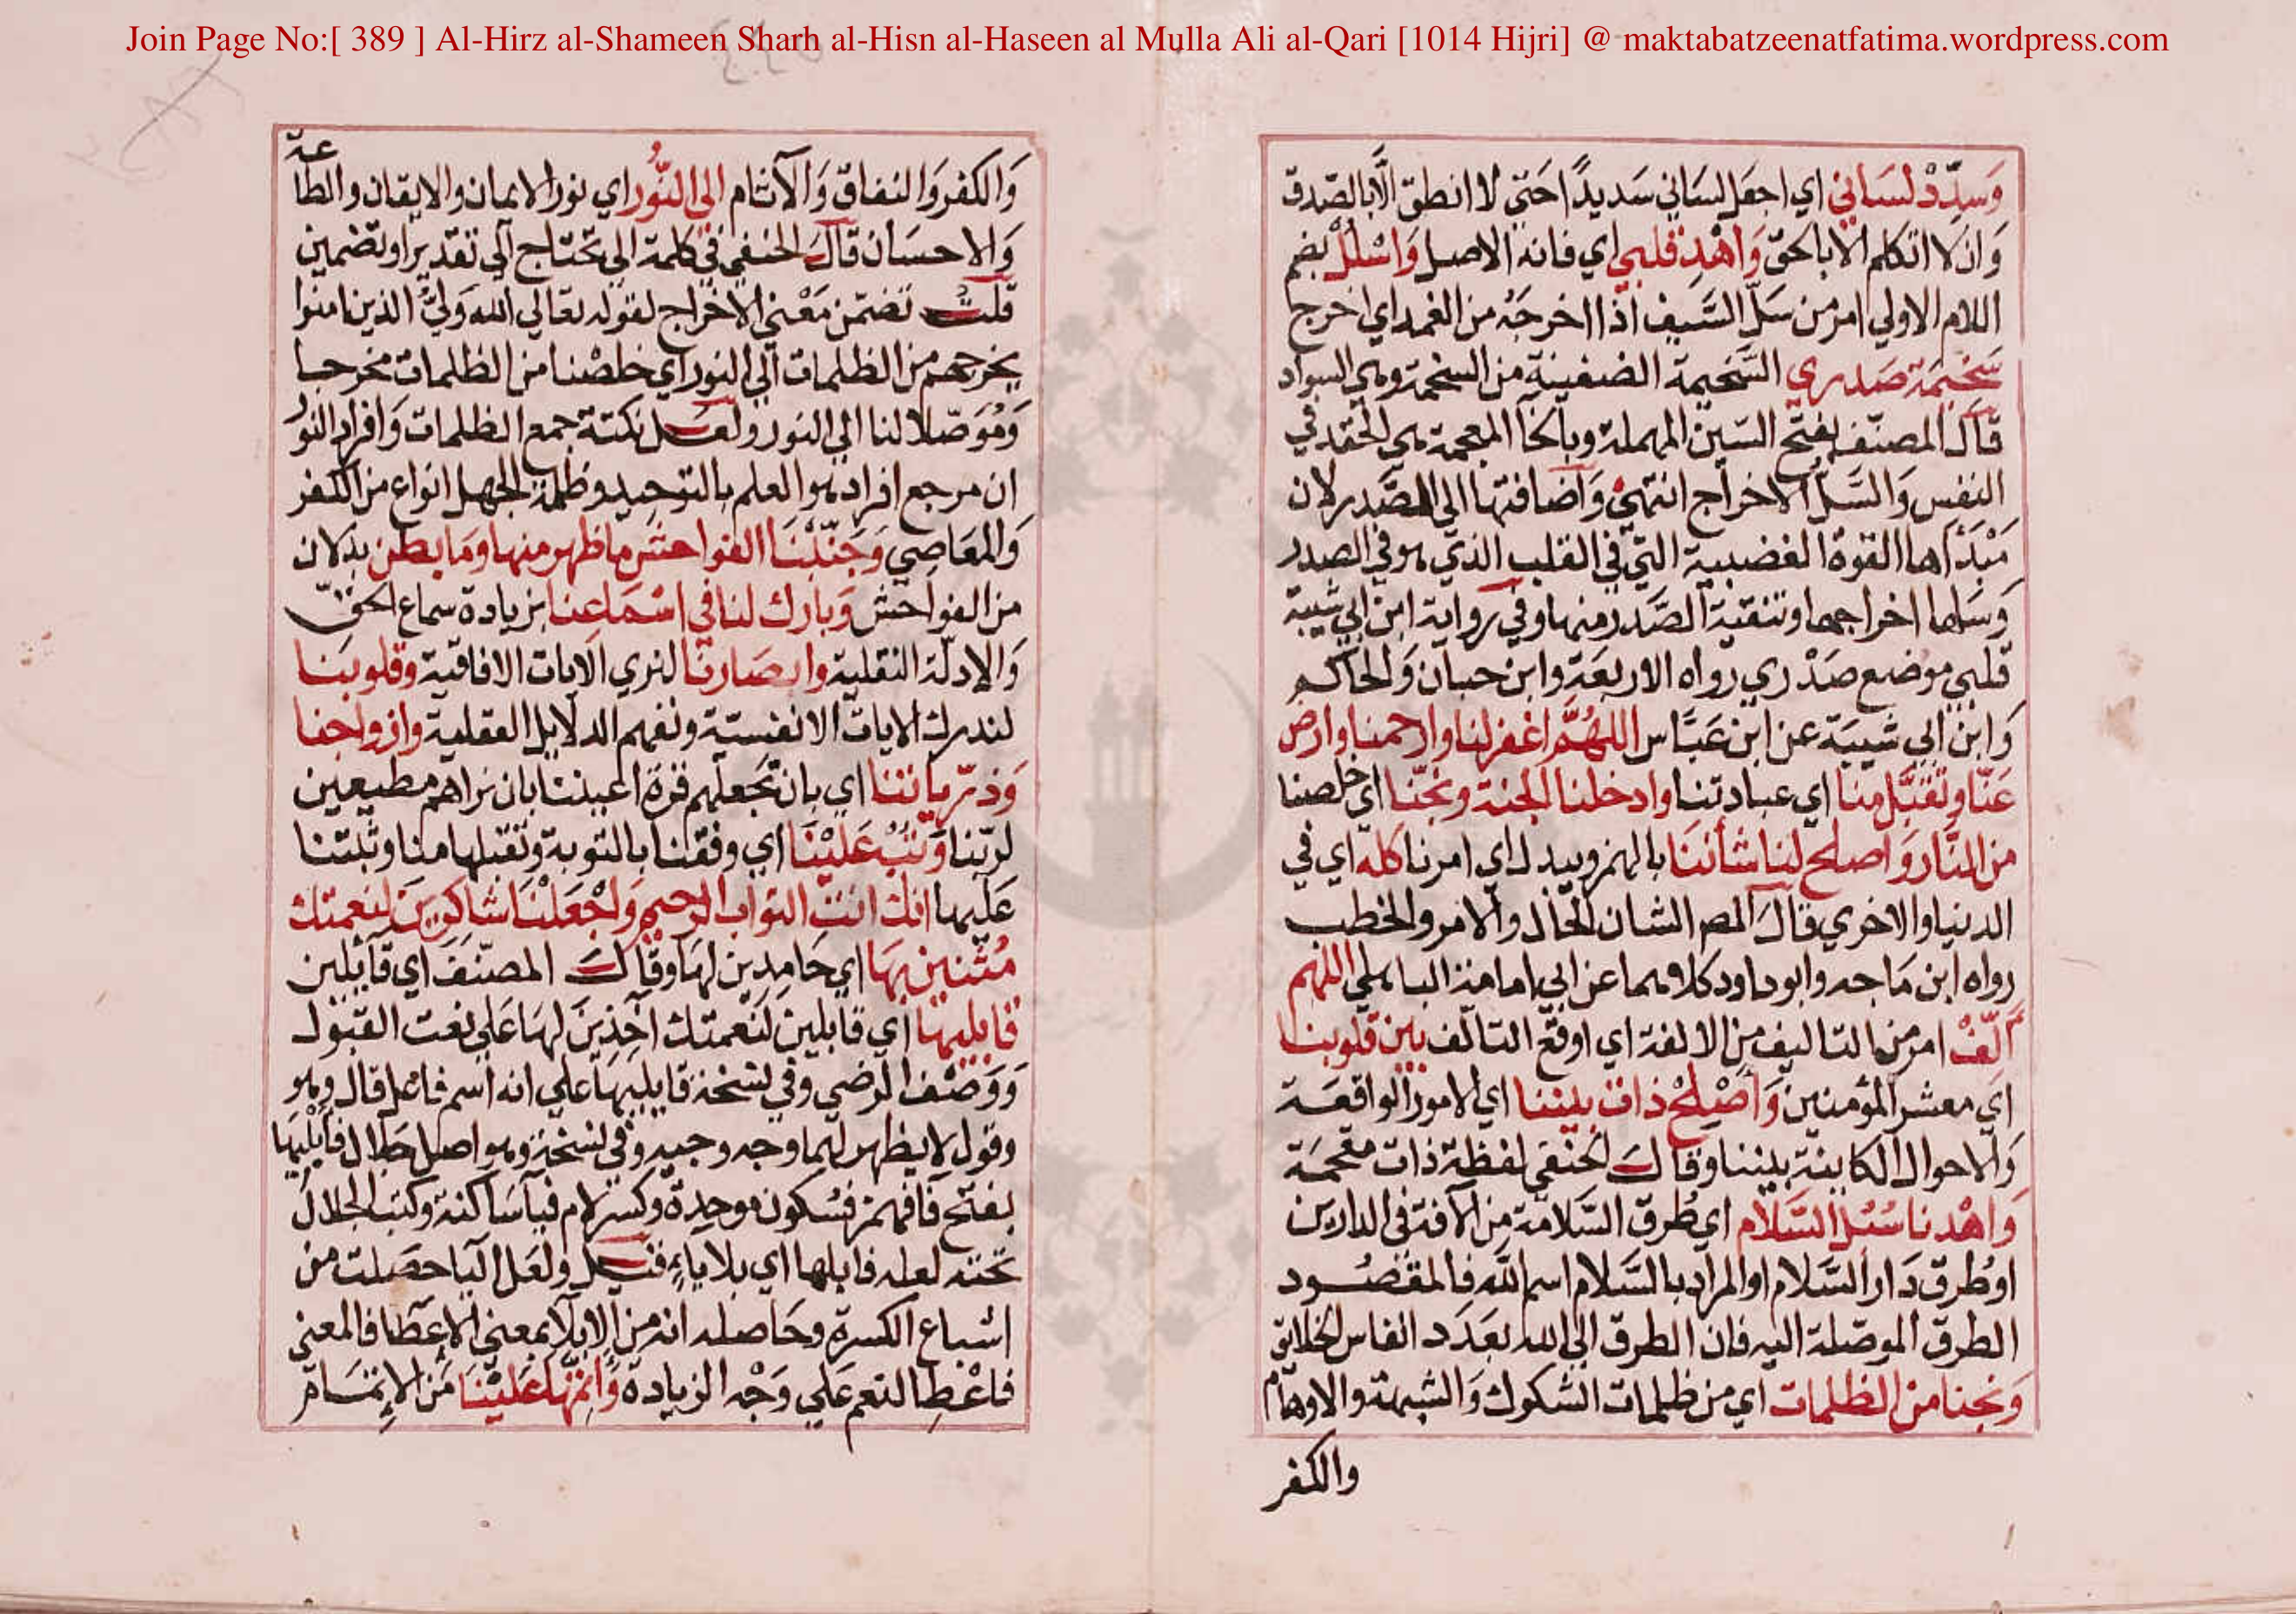 Join Page No:[ 389 ] Al-Hirz al-Shameen Sharh al-Hisn al-Haseen al Mulla Ali al-Qari [1014 Hijri] @ maktabatzeenatfatima.wordpress.com
وَسدِّدْ لسَاني اي اجعَل لسَاني سَديدًا حَتي لا انطق الَّا بالصّدق
وَان لا اتكلم الا بالحق وَاهْدِ قلبي اي فانه الاصل وَاسْلُلْ بضم
اللام الاولي امر من سَلّ السَّيف اذا اخرجَه من الغمد اي اخرج
سَخيمَة صَدري السَّخيمة الضغينة من السخمة وهي السواد
قالَ المصنّف بفتح السّين المهملة وبالخآ المعجمة هي الحقد في
النفس وَالسَّلُّ الاخراج انتهي وَاضافتها الي الصَّدر لان
مَبْدَأها القوة الغضبية التي في القلب الذي هو في الصدر
وَسَلها اخراجها وتنقية الصَّدر منها وفي رواية ابن ابي شيبة
قلبي موضع صَدْري رواه الاربعَة وابن حبان وَالحاكم
وَابن ابي شيبَة عن ابن عَبَّاس اللهُمَّ اغفر لنا وارحمنا وارض
عَنّا وتقبَّل منا اي عبادتنا وادخلنا الجنة ونجّنا اي خلصنا
من النَّار وَاصلح لنا شأننَا بالهمز ويبدل اي امرنا كله اي في
الدنيا والاخري قالَ المص الشان الحال والامر والخطب
رواه ابن مَاجه وابو داود كلاهما عن ابي امامة الباهلي اللهم
أَلّفْ امر من التاليف من الالفة اي اوقع التالف بين قلوبنا
اي معشر المؤمنين وَاصْلِحْ ذات بيننا اي الامور الواقعَة
وَالاحوال الكاينة بيننا وقالَ الحنفي لفظة ذات مقحمَة
وَاهْدنا سُبُل السَّلام اي طُرق السَّلامة من الآفة في الدارين
اوطُرق دَار السَّلام او المراد بالسَّلام اسم اللّه فالمقصُود
الطرق الموصّلة اليه فان الطرق الي الله بعَدَد انفاس الخلايق
وَنجنا من الظلمات اي من ظلمات الشكوك وَالشبهة والاوهام
والكفر
وَالكفر وَالنفاق وَالآثام الي النُّور اي نور الايمان والايقان والطاعة
وَالاحسَان قالَ الحنفي في كلمة الي تحتاج الي تقدير او تضمين
قلتُ تضمّن مَعْني الاخراج لقوله تعالي الله وَليُّ الذين امنوا
يخرجهم من الظلمات الي النور اي خلصْنا من الظلمات مخرجا
وَمُوَصّلا لنا الي النور ولعَل نكتة جمع الظلمات وَافراد النور
ان مرجع افراده هو العلم بالتوحيد وظلمة الجهل انواع من الكفر
وَالمعَاصي وَجَنّبْنَا الفواحش ما ظهر منها وَمَا بطن بدلان
من الفواحش وَبارك لنا في اسْمَاعنا بزيادة سماع الحق
وَالادلّة النقلية وابصَارنا لنري الايات الافاقية وقلوبنا
لندرك الايات الانفسية ونفهم الدلايل العقلية وازواجنا
وَذرّياتنا اي بان تجعَلهم قرة اعيننا بان نراهم مطيعين
لربّنا وَتُبْ عَلَيْنَا اي وفقنا بالتوبة وتقبلها منا وثبتنا
عَليها انك انت التواب الرحيم وَاجْعَلْنَا شاكرين لنعمتك
مُثنين بهَا اي حَامِدين لهَا وقالَ المصنّف اي قآيلين
قابليهَا اي قابلين لنعمتك آخذِينَ لهَا عَلي نعت القبول
وَوَصْف الرضي وفي نسخة قايليهَا علي انه اسم فاعل قال وهو
وقول لا يظهر لهما وجه وجيه وفي نسخة وهو اصل جلال فأبليها
بفتح فآ فهمز فسُكون موحدة وكسر لام فيآ سَاكنة وكتب الجلال
تحته لعله فابلها اي بلا ياء فقيل ولعَل اليا حصَلت من
اشباع الكسرة وحَاصله انه من الابلآ بمعني الاعطا فالمعني
فاعْطِ النعم عَلي وَجْه الزيادة وَأتِمّهَا عَليْنَا من الاتمام